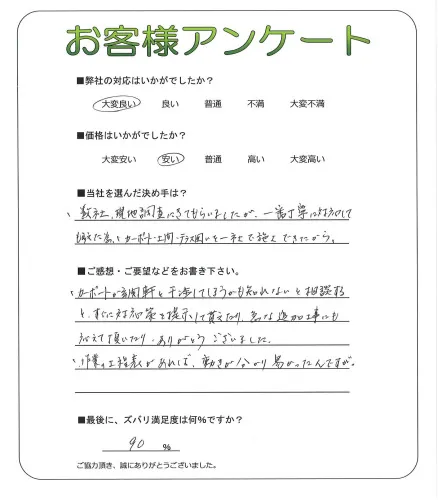 お客様アンケート
■弊社の対応はいかがでしたか?
大変良い 良い 普通 不満 大変不満
■価格はいかがでしたか?
大変安い 安い 普通 高い 大変高い
■当社を選んだ決め手は?
、数社、現地調査にきてもらいましたが、一番丁寧に対応して
頂えた為、カーポート・土間・テラス囲いを一社で施工できたから。
■ご感想・ご要望などをお書き下さい。
、カーポートが玄関軒と干渉してしまうかも知れないと相談する
と、すぐに対応策を提示して貰えたり、急な追加工事にも
応えて頂いたり、ありがとうございました。
、作業の工程表があれば、動きが分かり易かったんですが。
■最後に、ズバリ満足度は何%ですか?
90 %
ご協力頂き、誠にありがとうございました。